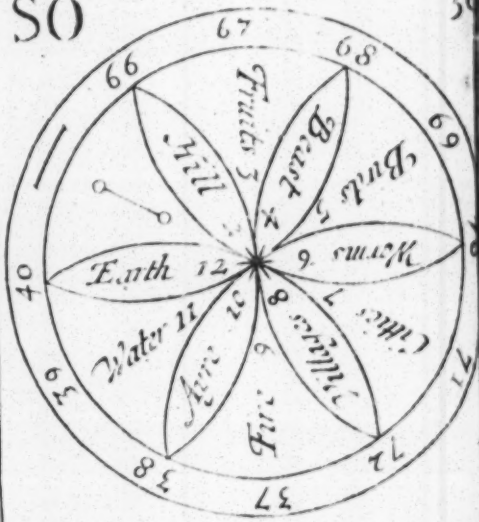 SO
66
67
68
69
71
72
37
38
39
40
Hill
Fruits 3
Beast 4
Birds 5
Worms 6
Citties 7
Villages 8
Fire 9
Ayre 10
Water 11
Earth 12